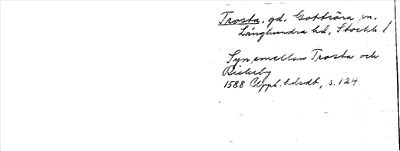 Trosta, gd, Gottröra sn.
Långhundra hd, Stockh. l
Syn emellan Trosta och
Risleby
1588 Uppl. hdsdt, s. 124